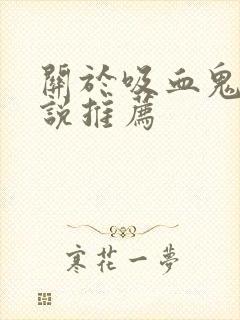 關於吸血鬼
說推薦
寒花一夢